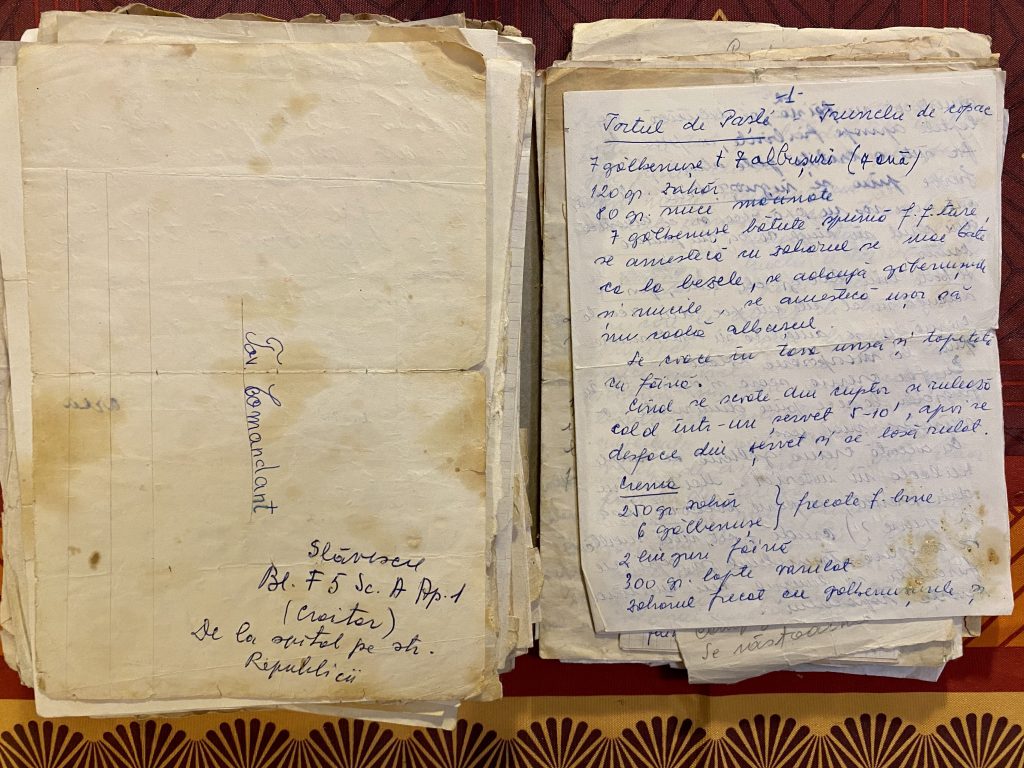 Tov. Comandant
Slăvescu
Bl. F5 Sc. A Ap. 1
(Croitor)
De la spital pe str.
Republicii
-1-
Tortul de Paști Trunchi de copac
7 gălbenușe + 7 albușuri (7 ouă)
120 gr. zahăr
80 gr. nuci măcinate
7 gălbenușe bătute spumă f. f. tare,
se amestecă cu zahărul se mai bate
ca la bezele, se adaugă gălbenușurile
și nucile, se amestecă ușor să
nu scadă albușul.
Se coace în tava unsă și tapetată
cu făină.
Cînd se scoate din cuptor se rulează
cald într-un șervet 5-10', apoi se
desface din șervet și se lasă rulat.
Crema
250 gr. zahăr } frecate f. bine
6 gălbenușe
2 linguri făină
300 gr. lapte vanilat
zahărul frecat cu gălbenușurile și
Se răstoarnă